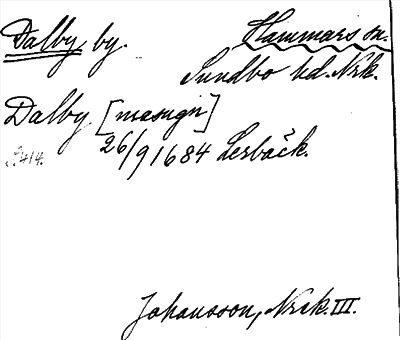 Dalby, by. Hammars sn.
Sundbo hd. Nrk.
Dalby [masugn]
26/9 1684 Lerbäck.
S. 414.
Johansson, Nrck. III.